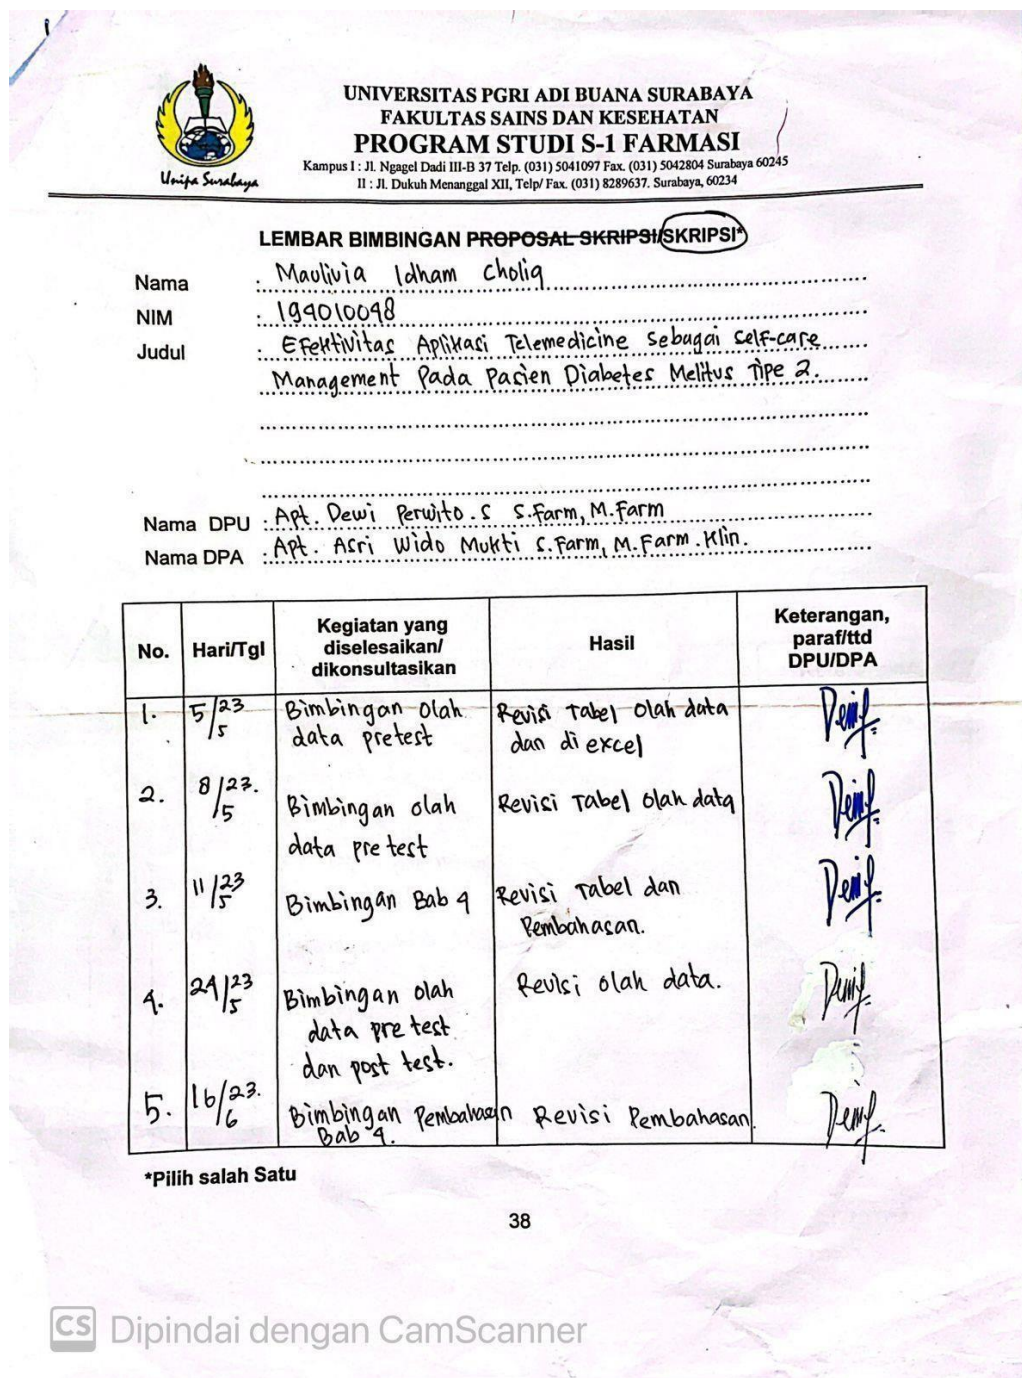 UNIVERSITAS PGRI ADI BUANA SURABAYA
FAKULTAS SAINS DAN KESEHATAN
PROGRAM STUDI S-1 FARMASI
Kampus I : Jl. Ngagel Dadi III-B 37 Telp. (031) 5041097 Fax. (031) 5042804 Surabaya 60245
II : Jl. Dukuh Menanggal XII, Telp/ Fax. (031) 8289637. Surabaya, 60234
Unipa Surabaya
LEMBAR BIMBINGAN PROPOSAL SKRIPSI/SKRIPSI*
Nama : Maulivia Idham Choliq
NIM : 194010048
Judul : Efektivitas Aplikasi Telemedicine Sebagai Self-care
Management Pada Pasien Diabetes Melitus Tipe 2.
Nama DPU : Apt. Dewi Perwito.S S.Farm, M.Farm
Nama DPA : Apt. Asri Wido Mukti S.Farm, M.Farm.Klin.
No. Hari/Tgl Kegiatan yang diselesaikan/ dikonsultasikan Hasil Keterangan, paraf/ttd DPU/DPA
1. 5/23 Bimbingan Olah Revisi Tabel Olah data
5 data pretest dan di excel
2. 8/23. Bimbingan olah Revisi Tabel Olah data
5 data pre test
3. 11/23 Bimbingan Bab 4 Revisi Tabel dan
5 Pembahasan.
4. 24/23 Bimbingan olah Revisi olah data.
5 data pre test
dan post test.
5. 16/23. Bimbingan Pembahasan Revisi Pembahasan.
6 Bab 4.
*Pilih salah Satu
38
CS Dipindai dengan CamScanner